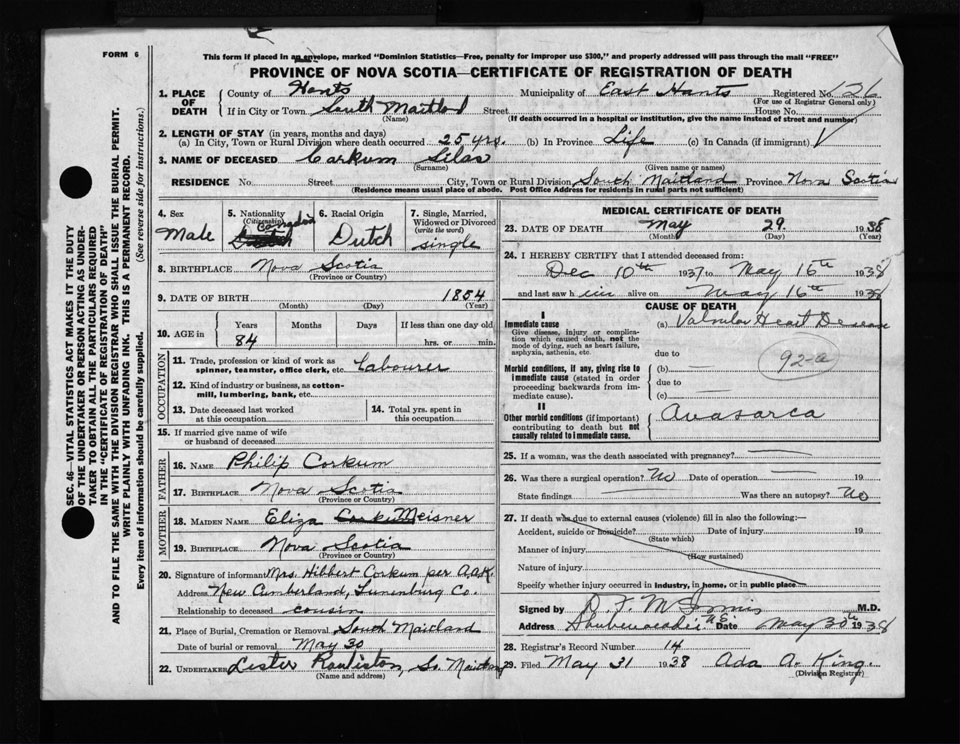 FORM 6
This form if placed in an envelope, marked "Dominion Statistics—Free, penalty for improper use $300," and properly addressed will pass through the mail "FREE"
PROVINCE OF NOVA SCOTIA—CERTIFICATE OF REGISTRATION OF DEATH
1. PLACE OF DEATH County of Hants Municipality of East Hants Registered No. 126
(For use of Registrar General only)
If in City or Town South Maitland Street House No.
(Name) (If death occurred in a hospital or institution, give the name instead of street and number)
2. LENGTH OF STAY (in years, months and days)
(a) In City, Town or Rural Division where death occurred 25 yrs. (b) In Province Life (c) In Canada (if immigrant)
3. NAME OF DECEASED Corkum Silas
(Surname) (Given name or names)
RESIDENCE No. Street City, Town or Rural Division South Maitland Province Nova Scotia
(Residence means usual place of abode. Post Office Address for residents in rural parts not sufficient)
4. Sex Male
5. Nationality (Citizenship)
6. Racial Origin Dutch
7. Single, Married, Widowed or Divorced (write the word) single
8. BIRTHPLACE Nova Scotia
(Province or Country)
9. DATE OF BIRTH 1854
(Month) (Day) (Year)
10. AGE in Years Months Days If less than one day old
84 hrs. or min.
OCCUPATION
11. Trade, profession or kind of work as spinner, teamster, office clerk, etc. Labourer
12. Kind of industry or business, as cotton-mill, lumbering, bank, etc.
13. Date deceased last worked at this occupation
14. Total yrs. spent in this occupation
15. If married give name of wife or husband of deceased
FATHER
16. NAME Philip Corkum
17. BIRTHPLACE Nova Scotia
(Province or Country)
MOTHER
18. MAIDEN NAME Eliza Meisner
19. BIRTHPLACE Nova Scotia
(Province or Country)
20. Signature of informant Mrs. Hibbert Corkum per A.A.K.
Address New Cumberland, Lunenburg Co.
Relationship to deceased cousin
21. Place of Burial, Cremation or Removal South Maitland
Date of burial or removal May 30
22. UNDERTAKER Lester So. Maitland
(Name and address)
MEDICAL CERTIFICATE OF DEATH
23. DATE OF DEATH May 29 1938
(Month) (Day) (Year)
24. I HEREBY CERTIFY that I attended deceased from:
Dec 10th 1937 to May 16th 1938
and last saw him alive on May 16th 1938
CAUSE OF DEATH
I
Immediate cause
Give disease, injury or complication which caused death, not the mode of dying, such as heart failure, asphyxia, asthenia, etc.
(a) Valvular Heart Disease
due to
92-a
Morbid conditions, if any, giving rise to immediate cause (stated in order proceeding backwards from immediate cause).
(b) —
due to —
(c)
II
Other morbid conditions (if important) contributing to death but not causally related to immediate cause.
Anasarca
25. If a woman, was the death associated with pregnancy?
26. Was there a surgical operation? No Date of operation 19
State findings Was there an autopsy? No
27. If death was due to external causes (violence) fill in also the following:
Accident, suicide or homicide? Date of injury 19
(State which)
Manner of injury
(How sustained)
Nature of injury
Specify whether injury occurred in industry, in home, or in public place
Signed by M.D.
Address Shubenacadie N.S. Date May 30th 1938
28. Registrar's Record Number 14
29. Filed May 31 1938 Ada A. King.
(Division Registrar)
SEC. 46—VITAL STATISTICS ACT MAKES IT THE DUTY
OF THE UNDERTAKER OR PERSON ACTING AS UNDER-
TAKER TO OBTAIN ALL THE PARTICULARS REQUIRED
IN THE "CERTIFICATE OF REGISTRATION OF DEATH"
AND TO FILE THE SAME WITH THE DIVISION REGISTRAR WHO SHALL ISSUE THE BURIAL PERMIT.
WRITE PLAINLY WITH UNFADING INK. THIS IS A PERMANENT RECORD.
Every item of information should be carefully supplied. (See reverse side for instructions.)